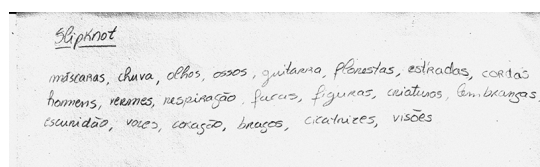 Slipknot
máscaras, chuva, olhos, ossos, guitarra, florestas, estradas, cordas
homens, vermes, respiração, facas, figuras, criativos, lembranças,
escuridão, vozes, coração, braços, cicatrizes, visões